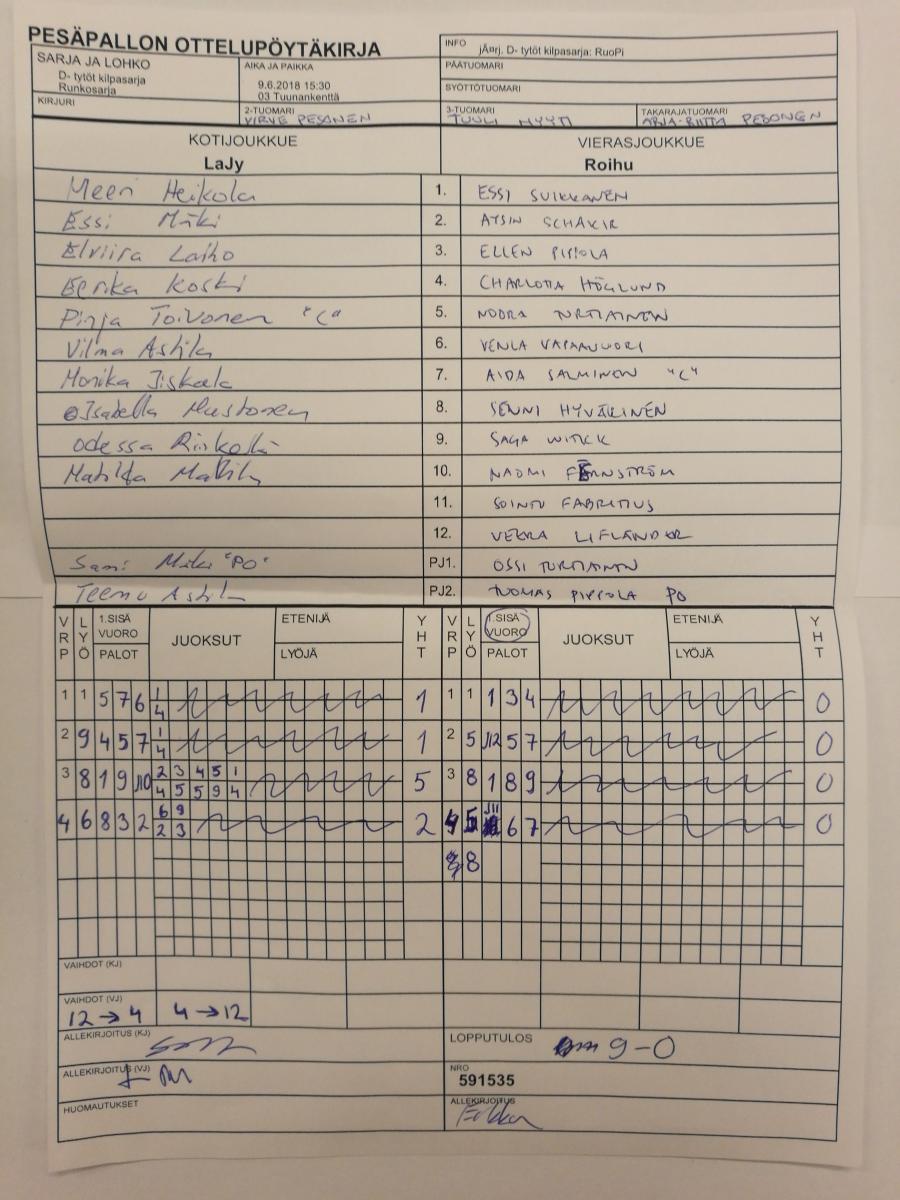 PESÄPALLON OTTELUPÖYTÄKIRJA
INFO jÄarj. D- tytöt kilpasarja: RuoPi
SARJA JA LOHKO
D- tytöt kilpasarja
Runkosarja
AIKA JA PAIKKA
9.6.2018 15:30
03 Tuunankenttä
PÄÄTUOMARI
SYÖTTÖTUOMARI
KIRJURI
2-TUOMARI
VIRVE PESONEN
3-TUOMARI
TUULI MYYTI
TAKARAJATUOMARI
ARJA-RIITTA PESONEN
KOTIJOUKKUE
LaJy
VIERASJOUKKUE
Roihu
Meeri Heikola 1. ESSI SUIKKANEN
Essi Mäki 2. AYSIN SCHAKIR
Elviira Laiho 3. ELLEN PIPPOLA
Eerika Koski 4. CHARLOTTA HÖGLUND
Pinja Toivonen "C" 5. NOORA TURTIAINEN
Vilma Astila 6. VENLA VAPAAVUORI
Monika Iiskala 7. AIDA SALMINEN "C"
Isabella Mustonen 8. SENNI HYVÄRINEN
Odessa 9. SAGA WITICK
Matilda 10. NAOMI FÄRNSTRÖM
11. SOINTU FABRITIUS
12. VEERA LIFLÄNDER
Sami Mäki "PO" PJ1. OSSI TURTIAINEN
Teemu Astila PJ2. TUOMAS PIPPOLA PO
VRP LYÖ 1.SISÄ VUORO PALOT JUOKSUT ETENIJÄ LYÖJÄ YHT VRP LYÖ 1.SISÄ VUORO PALOT JUOKSUT ETENIJÄ LYÖJÄ YHT
1 1 5 7 6 1/4 1 1 1 1 3 4 0
2 9 4 5 7 1/4 1 2 5 J12 5 7 0
3 8 1 9 J10 2/4 3/5 4/5 5/9 1/4 5 3 8 1 8 9 0
4 6 8 3 2 6/2 9/3 2 4 5 J11 6 7 0
8
VAIHDOT (KJ)
VAIHDOT (VJ)
12→4 4→12
ALLEKIRJOITUS (KJ)
LOPPUTULOS 9-0
ALLEKIRJOITUS (VJ)
NRO
591535
HUOMAUTUKSET
ALLEKIRJOITUS